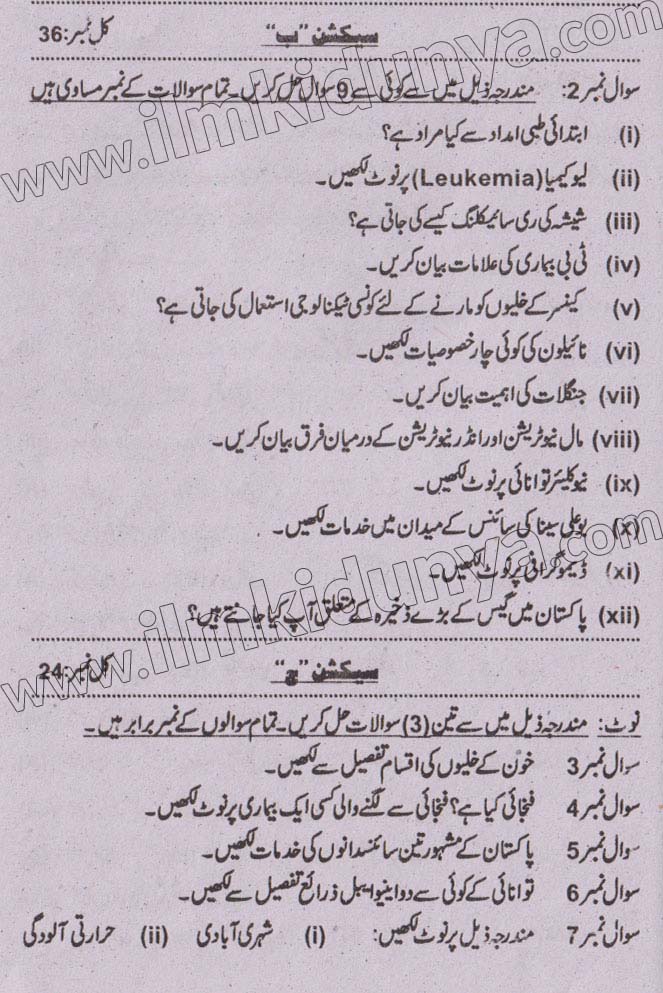 سیکشن "ب" کل نمبر: 36
سوال نمبر 2: مندرجہ ذیل میں سے کوئی سے 9 سوال حل کریں۔ تمام سوالات کے نمبر مساوی ہیں
(i) ابتدائی طبی امداد سے کیا مراد ہے؟
(ii) لیوکیمیا (Leukemia) پر نوٹ لکھیں۔
(iii) شیشہ کی ری سائیکلنگ کیسے کی جاتی ہے؟
(iv) ٹی بی بیماری کی علامات بیان کریں۔
(v) کینسر کے خلیوں کو مارنے کے لئے کونسی ٹیکنالوجی استعمال کی جاتی ہے؟
(vi) نائیلون کی کوئی چار خصوصیات لکھیں۔
(vii) جنگلات کی اہمیت بیان کریں۔
(viii) مال نیوٹریشن اور انڈر نیوٹریشن کے درمیان فرق بیان کریں۔
(ix) نیوکلیئر توانائی پر نوٹ لکھیں۔
(x) بوعلی سینا کی سائنس کے میدان میں خدمات لکھیں۔
(xi) ڈیموگرافی پر نوٹ لکھیں۔
(xii) پاکستان میں گیس کے بڑے ذخیرہ کے متعلق آپ کیا جانتے ہیں؟
سیکشن "ج" کل نمبر: 24
نوٹ: مندرجہ ذیل میں سے تین (3) سوالات حل کریں۔ تمام سوالوں کے نمبر برابر ہیں۔
سوال نمبر 3 خون کے خلیوں کی اقسام تفصیل سے لکھیں۔
سوال نمبر 4 فنجائی کیا ہے؟ فنجائی سے لگنے والی کسی ایک بیماری پر نوٹ لکھیں۔
سوال نمبر 5 پاکستان کے مشہور تین سائنسدانوں کی خدمات لکھیں۔
سوال نمبر 6 توانائی کے کوئی سے دو اینیوایبل ذرائع تفصیل سے لکھیں۔
سوال نمبر 7 مندرجہ ذیل پر نوٹ لکھیں: (i) شہری آبادی (ii) حرارتی آلودگی
www.ilmkidunya.com
www.ilmkidunya.com